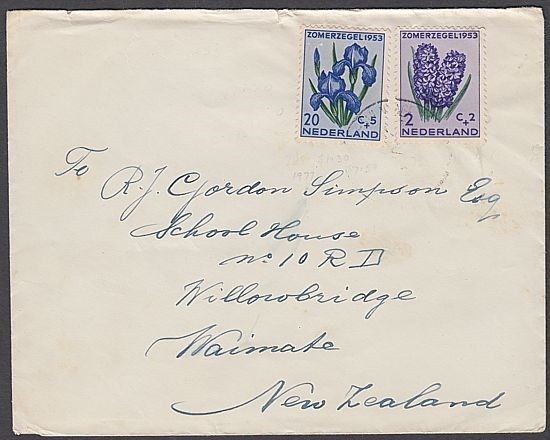 ZOMERZEGEL 1953
20 C+5
NEDERLAND
ZOMERZEGEL 1953
2 C+2
NEDERLAND
To R.J. Gordon Simpson Esq
School House
no 10 R D
Willowbridge
Waimate
New Zealand